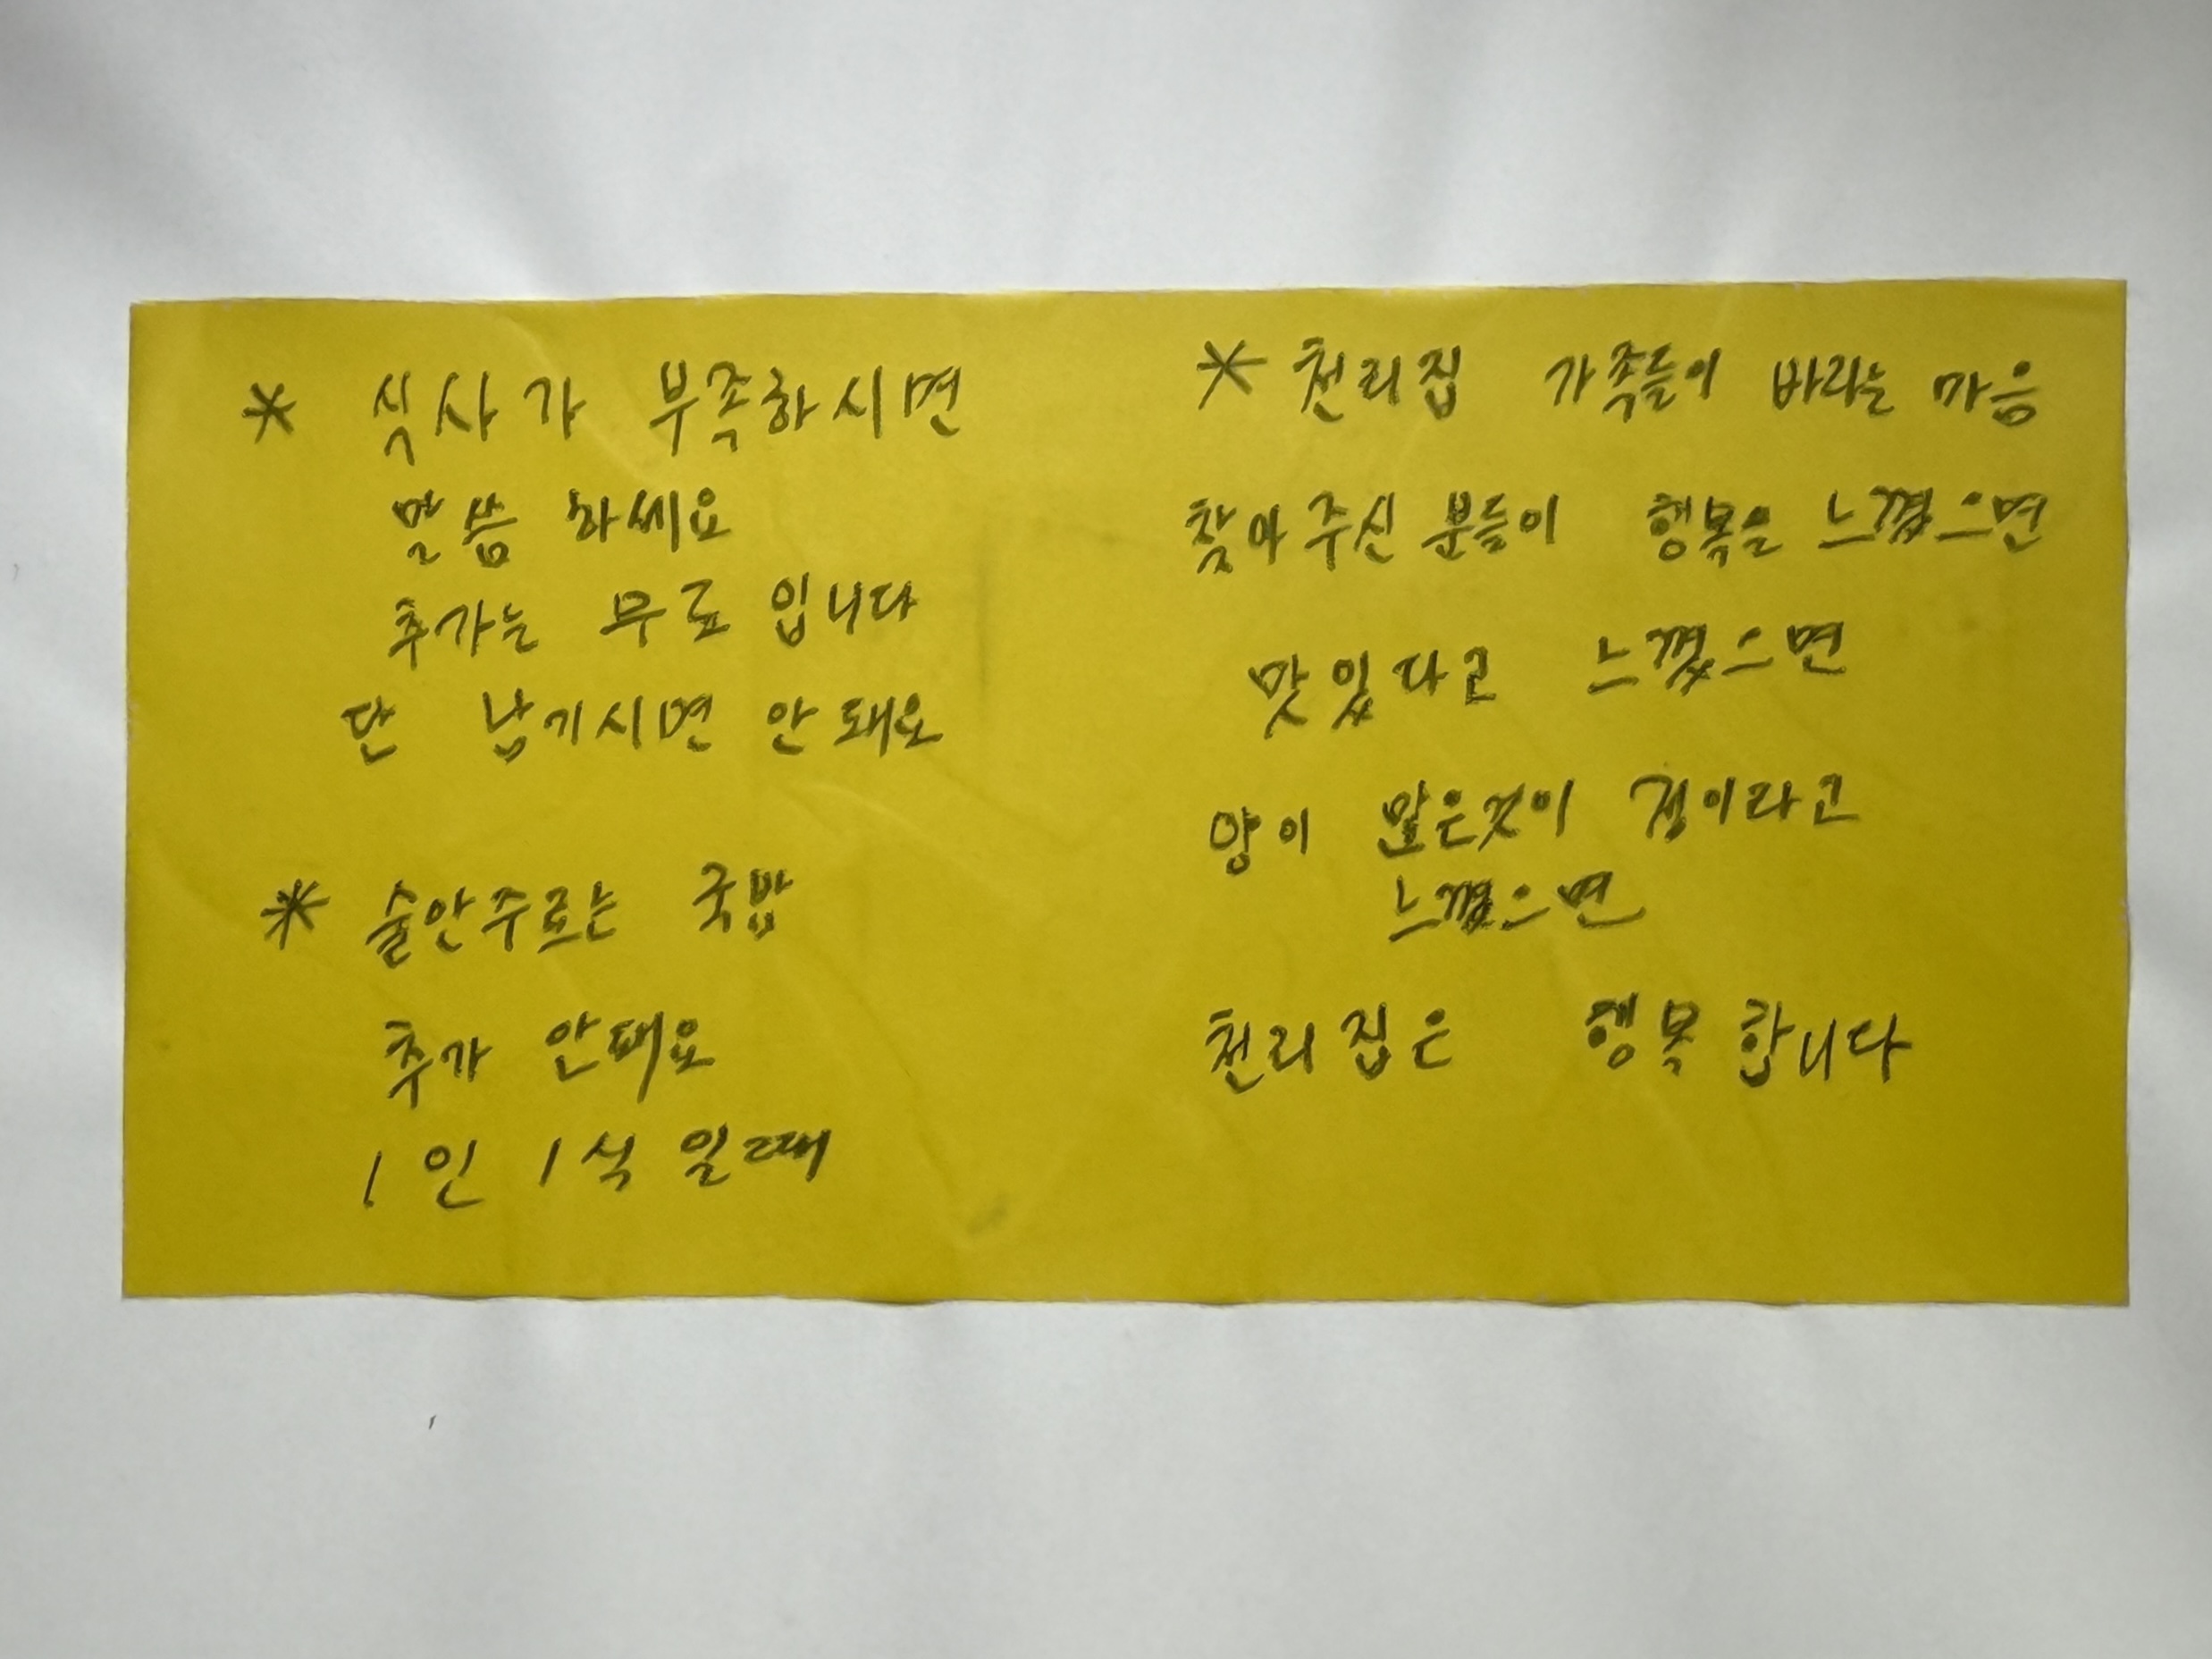 * 식사가 부족하시면
말씀 하세요
추가는 무료 입니다
단 남기시면 안돼요
* 술안주로는 국밥
추가 안돼요
1인 1식 일때
* 천리집 가족들이 바라는 마음
찾아주신 분들이 행복을 느꼈으면
맛있다고 느꼈으면
양이 많은것이 정이라고
느꼈으면
천리집은 행복합니다